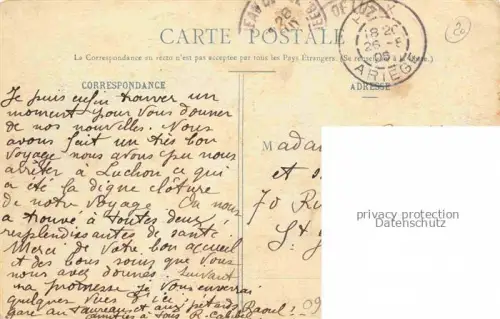 CARTE POSTALE
La Correspondance au recto n'est pas acceptée par tous les Pays Étrangers. (Se renseigner à la Poste.)
CORRESPONDANCE
ADRESSE
Je puis enfin trouver un
moment pour vous donner
de nos nouvelles. Nous
avons fait un très bon
voyage nous avons pu nous
arrêter à Luchon ce qui
a été la digne clôture
de notre voyage. On nous
a trouvé à toutes deux
resplendissantes de santé
Merci de votre bon accueil
et des bons soins que vous
nous avez donnés. Suivant
ma promesse je vous enverrai
quelques vues d'ici
gare au taureau et aux pétards Raoul!
amitiés à tous R.
M
Madam
et
70 Ru
St
privacy protection
Datenschutz
18 20
26 -8
05
ARIÈGE
28
09
20